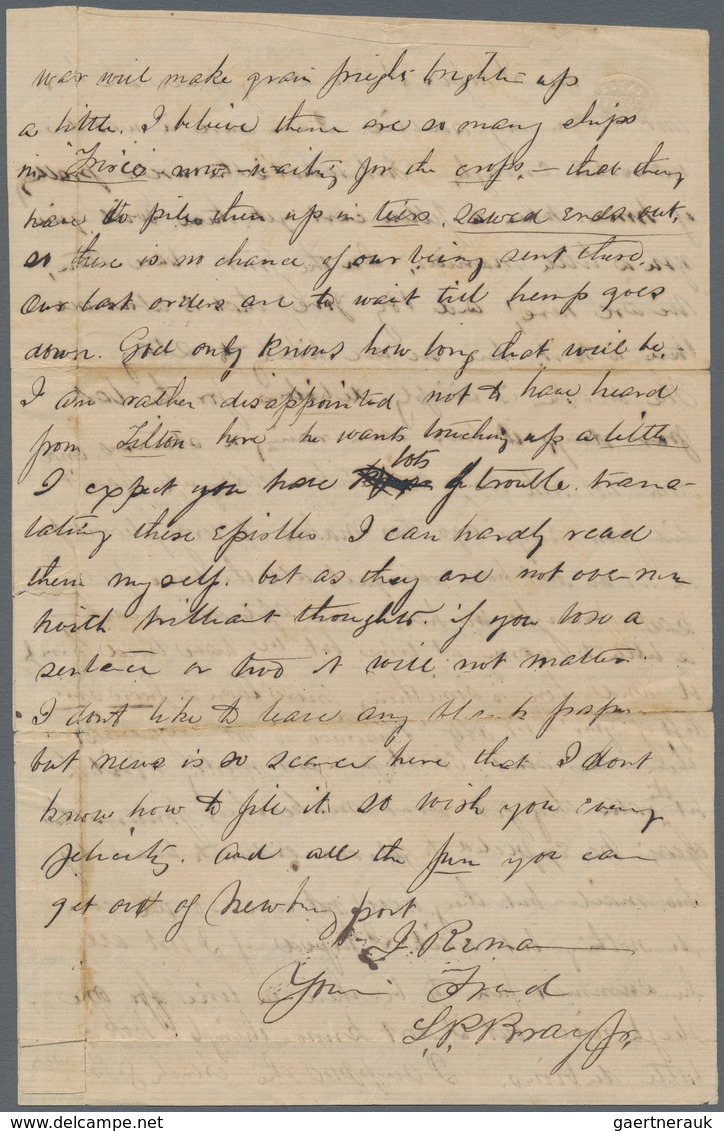 war will make grain freight brighten up
a little. I believe there are so many ships
in Frisco now waiting for the crops, - that they
have to pile them up in tiers, sawed ends out,
so there is no chance of our being sent there
Our last orders are to wait till hemp goes
down. God only knows how long that will be.
I am rather disappointed not to have heard
from Tilton here he wants touching up a little
I expect you have lots of trouble trans-
lating these epistles. I can hardly read
them myself. but as they are not over run
with brilliant thoughts. if you lose a
sentence or two it will not matter.
I don't like to leave any blank paper
but news is so scarce here that I dont
know how to fill it. so wish you every
felicity. and all the fun you can
get out of Newburyport
I. Remain
Your Friend
S.P. Bray Jr.
gaertnerauk